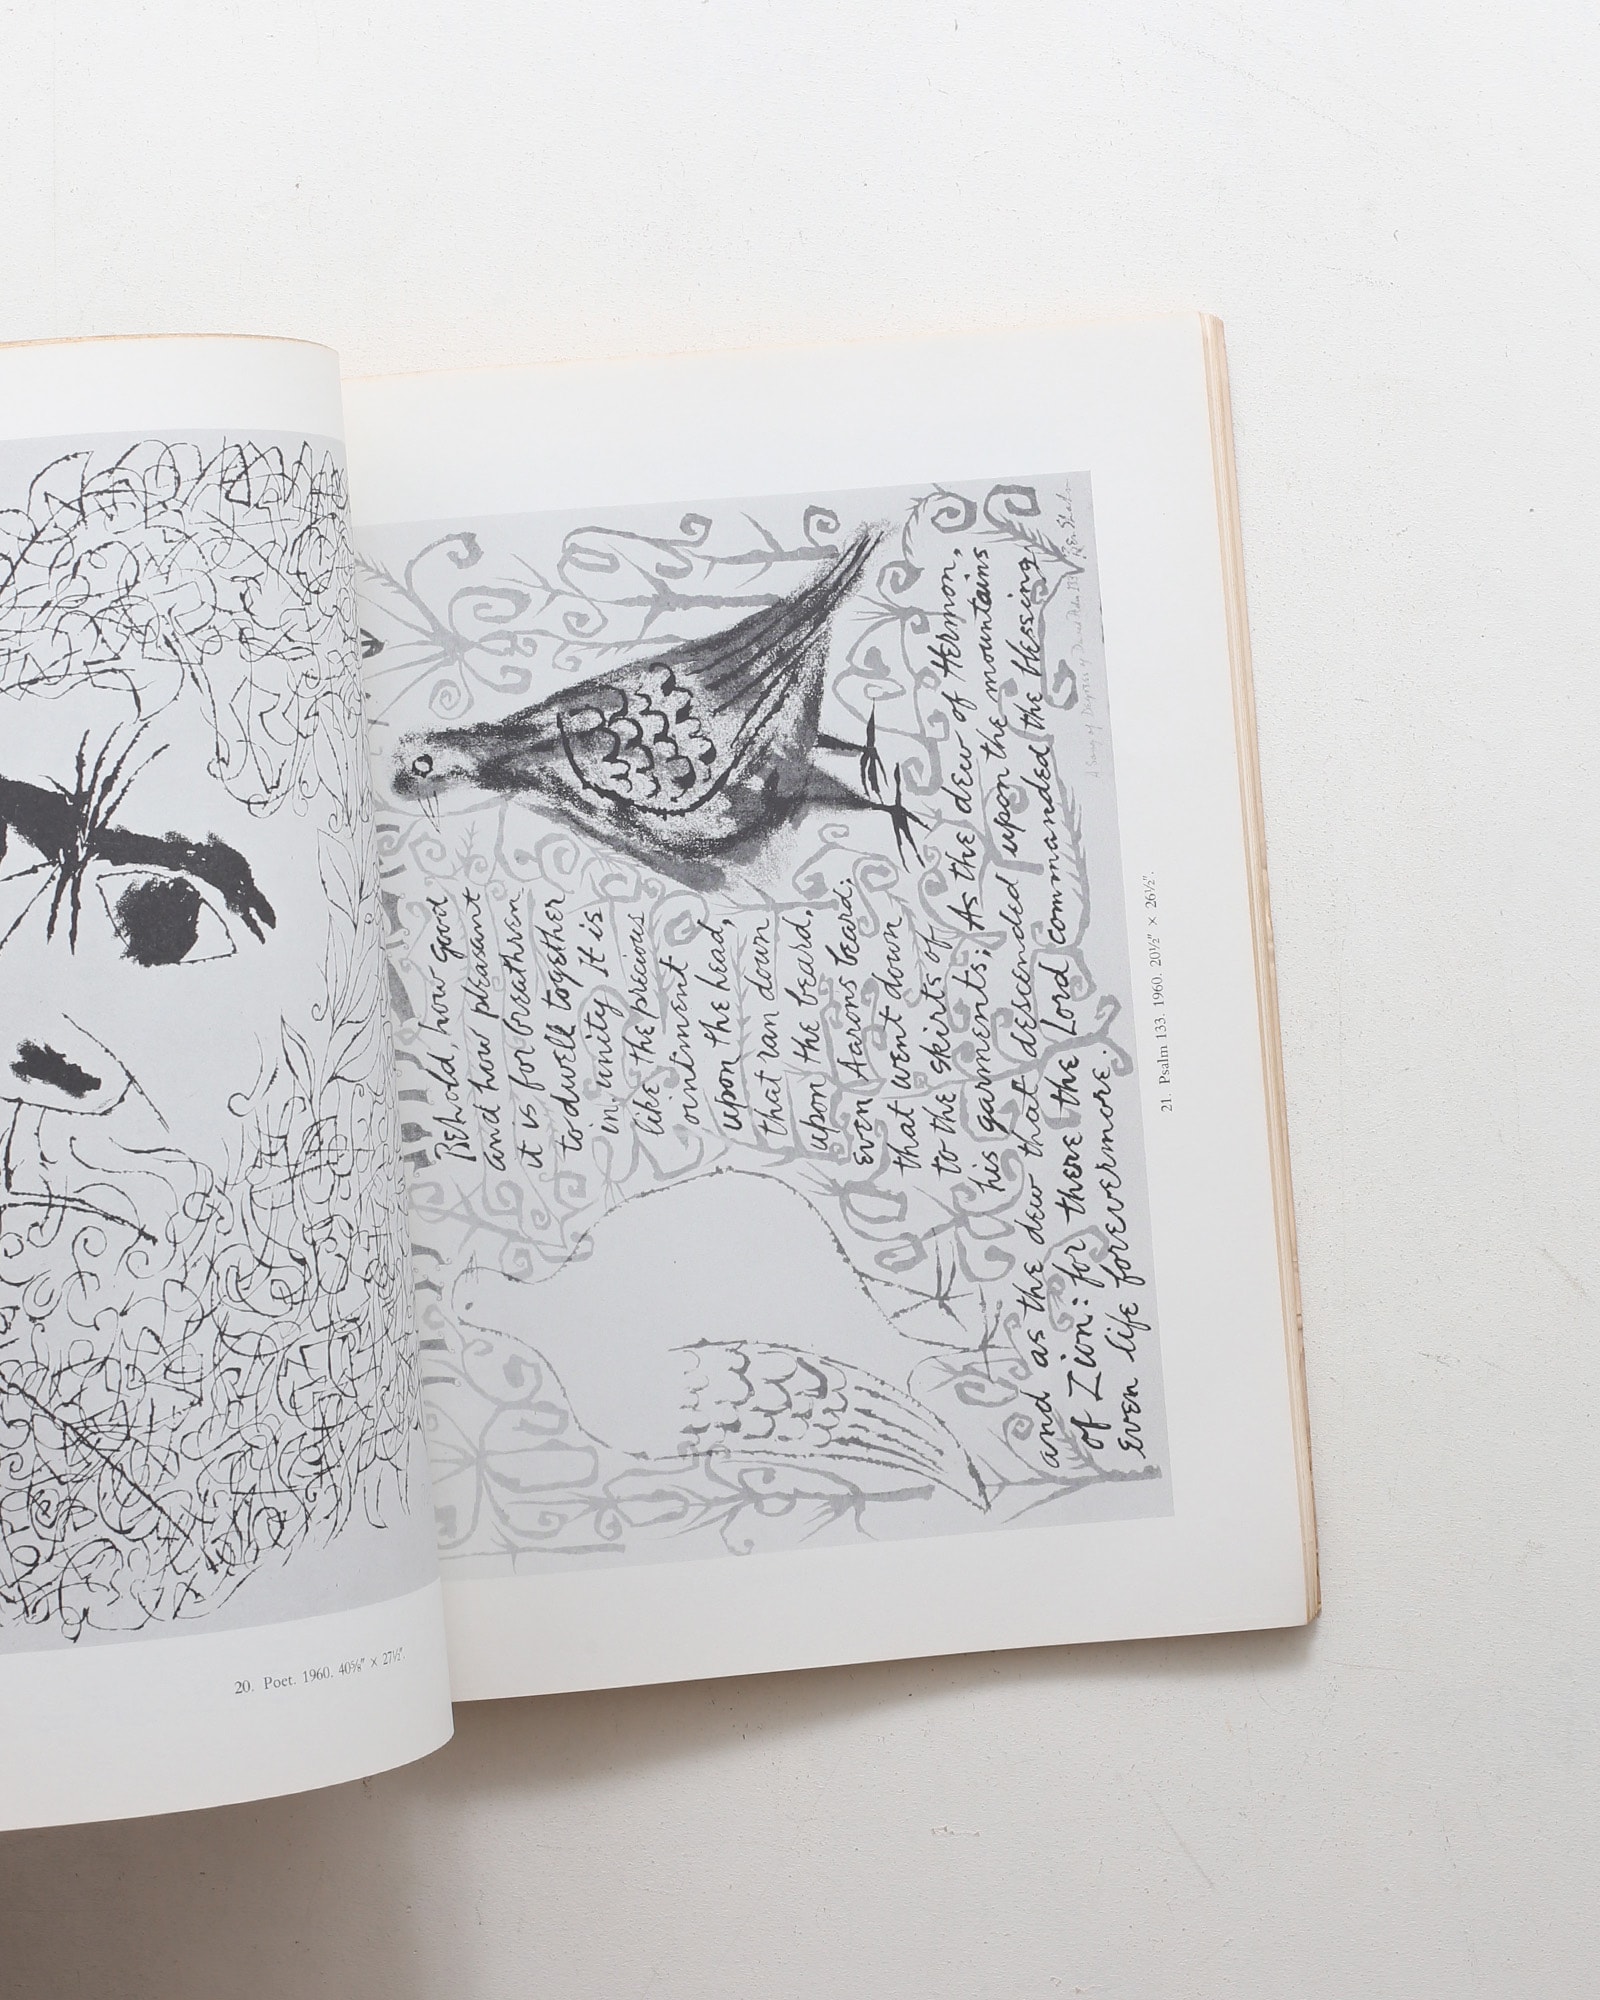 20. Poet. 1960. 40⅝" × 27½".
Behold, how good
and how pleasant
it is for breathren
to dwell together
in unity it is
like the precious
ointment
upon the head,
that ran down
upon the beard,
even Aarons beard:
that went down
to the skirts of
his garments; As the dew of Hermon,
and as the dew that descended upon the mountains
of Zion: for there the Lord commanded the blessing
even life forevermore.
Ben Shahn
21. Psalm 133. 1960. 20½" × 26½".